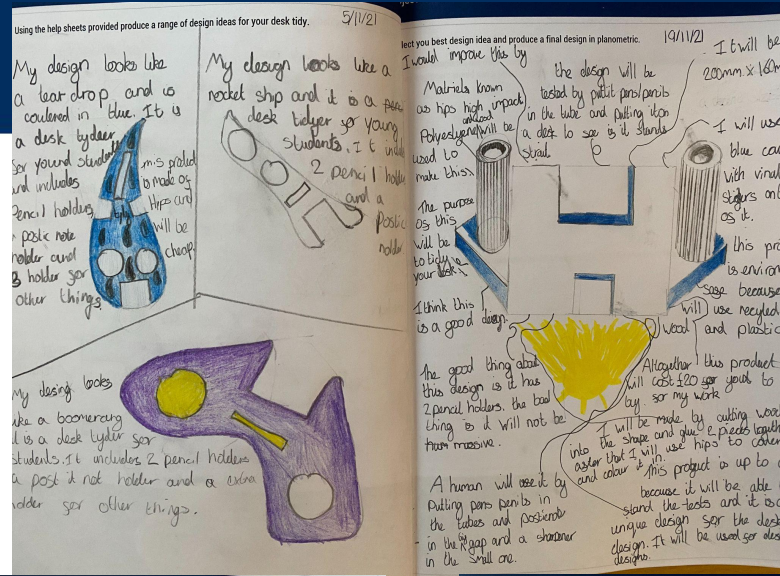 Using the help sheets provided produce a range of design ideas for your desk tidy.
5/11/21
My design looks like
a tear drop and is
coulered in blue. It is
a desk tydeer
for yound students
and includes
Pencil holders
postic note
holder and
3 holder for
other things.
this product
is made of
Hips and
will be
cheap.
My design looks like a
rocket ship and it is a
desk tidyer for young
students. It
2 pencil
and a
Postic
holder
My desing looks
like a boomerang
it is a desk tyder for
students. It includes 2 pencil holders
a post it not holder and a extra
holder for other things.
lect you best design idea and produce a final design in planometric.
19/11/21
I would improve this by
Matriels known
as hips high impact
Polyestyrene will be
used to
make this.
The purpose
of this
will be
to tidy
your desk.
I think this
is a good design.
the design will be
tested by puttit pens/pencils
in the tube and putting it on
a desk to see if it stands
strait.
It will be
200mm x 160m
I will use
blue
with vinal
stijers on
of it.
this pro
is environ
safe because
will use recyled
wood and plastic
The good thing about
this design is it has
2 pencil holders. the bad
thing is it will not be
massive.
Altogether this product
will cost £20 for you to
buy. for my work
I will be made by cutting wood
into the shape and glue 2 pieces togeth
after that I will use hips to
and colour it in.
This product is up to
because it will be able
stand the tests and it is a
unique design for the desk
design. It will be used for des
designs.
A human will use it by
Putting pens penils in
the tubes and postienote
in the big gap and a sharpener
in the small one.